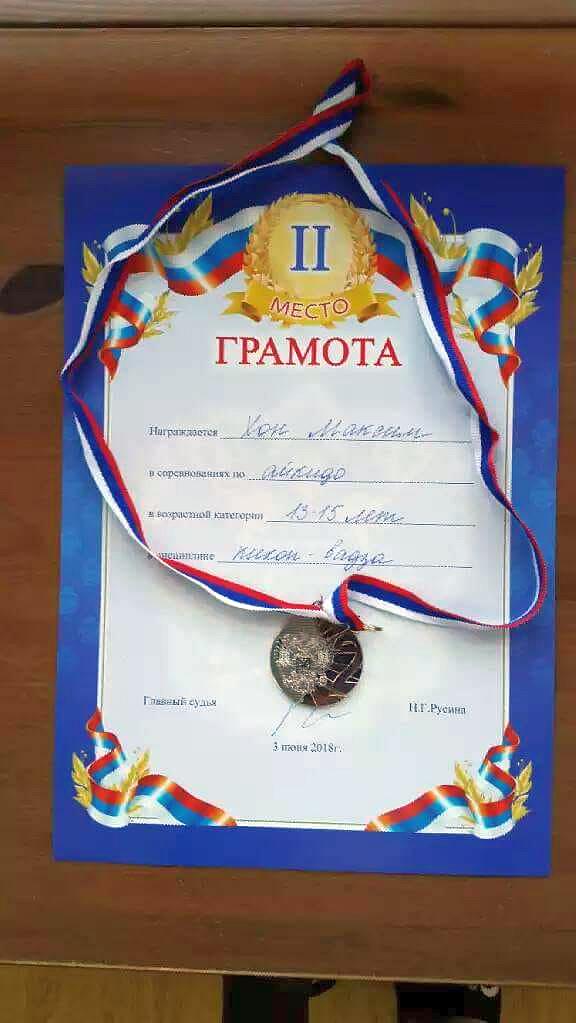 II
МЕСТО
ГРАМОТА
Награждается Хон Максим
в соревнованиях по айкидо
в возрастной категории 13-15 лет
дисциплине кихон - вадза
Главный судья Н.Г.Русина
3 июня 2018г.